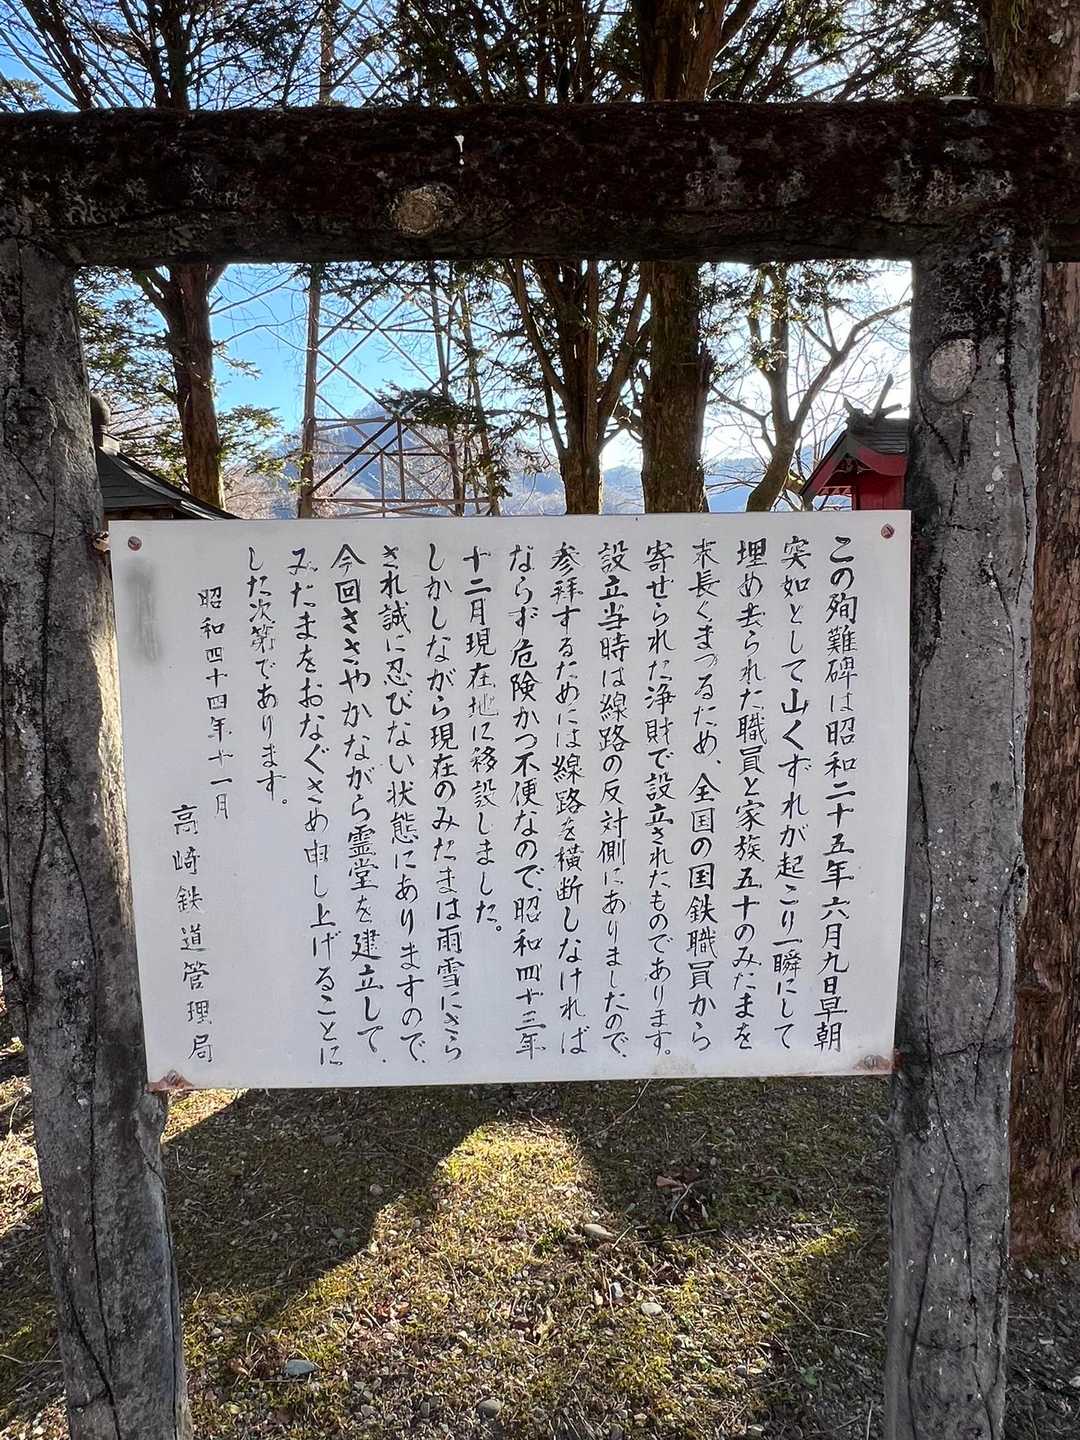 この殉難碑は昭和二十五年六月九日早朝
突如として山くずれが起こり一瞬にして
埋め去られた職員と家族五十のみたまを
末長くまつるため、全国の国鉄職員から
寄せられた浄財で設立されたものであります。
設立当時は線路の反対側にありましたので、
参拝するためには線路を横断しなければ
ならず危険かつ不便なので、昭和四十三年
十二月現在地に移設しました。
しかしながら現在のみたまは雨雪にさら
され誠に忍びない状態にありますので、
今回ささやかながら霊堂を建立して、
みたまをおなぐさめ申し上げることに
した次第であります。
昭和四十四年十一月
高崎鉄道管理局